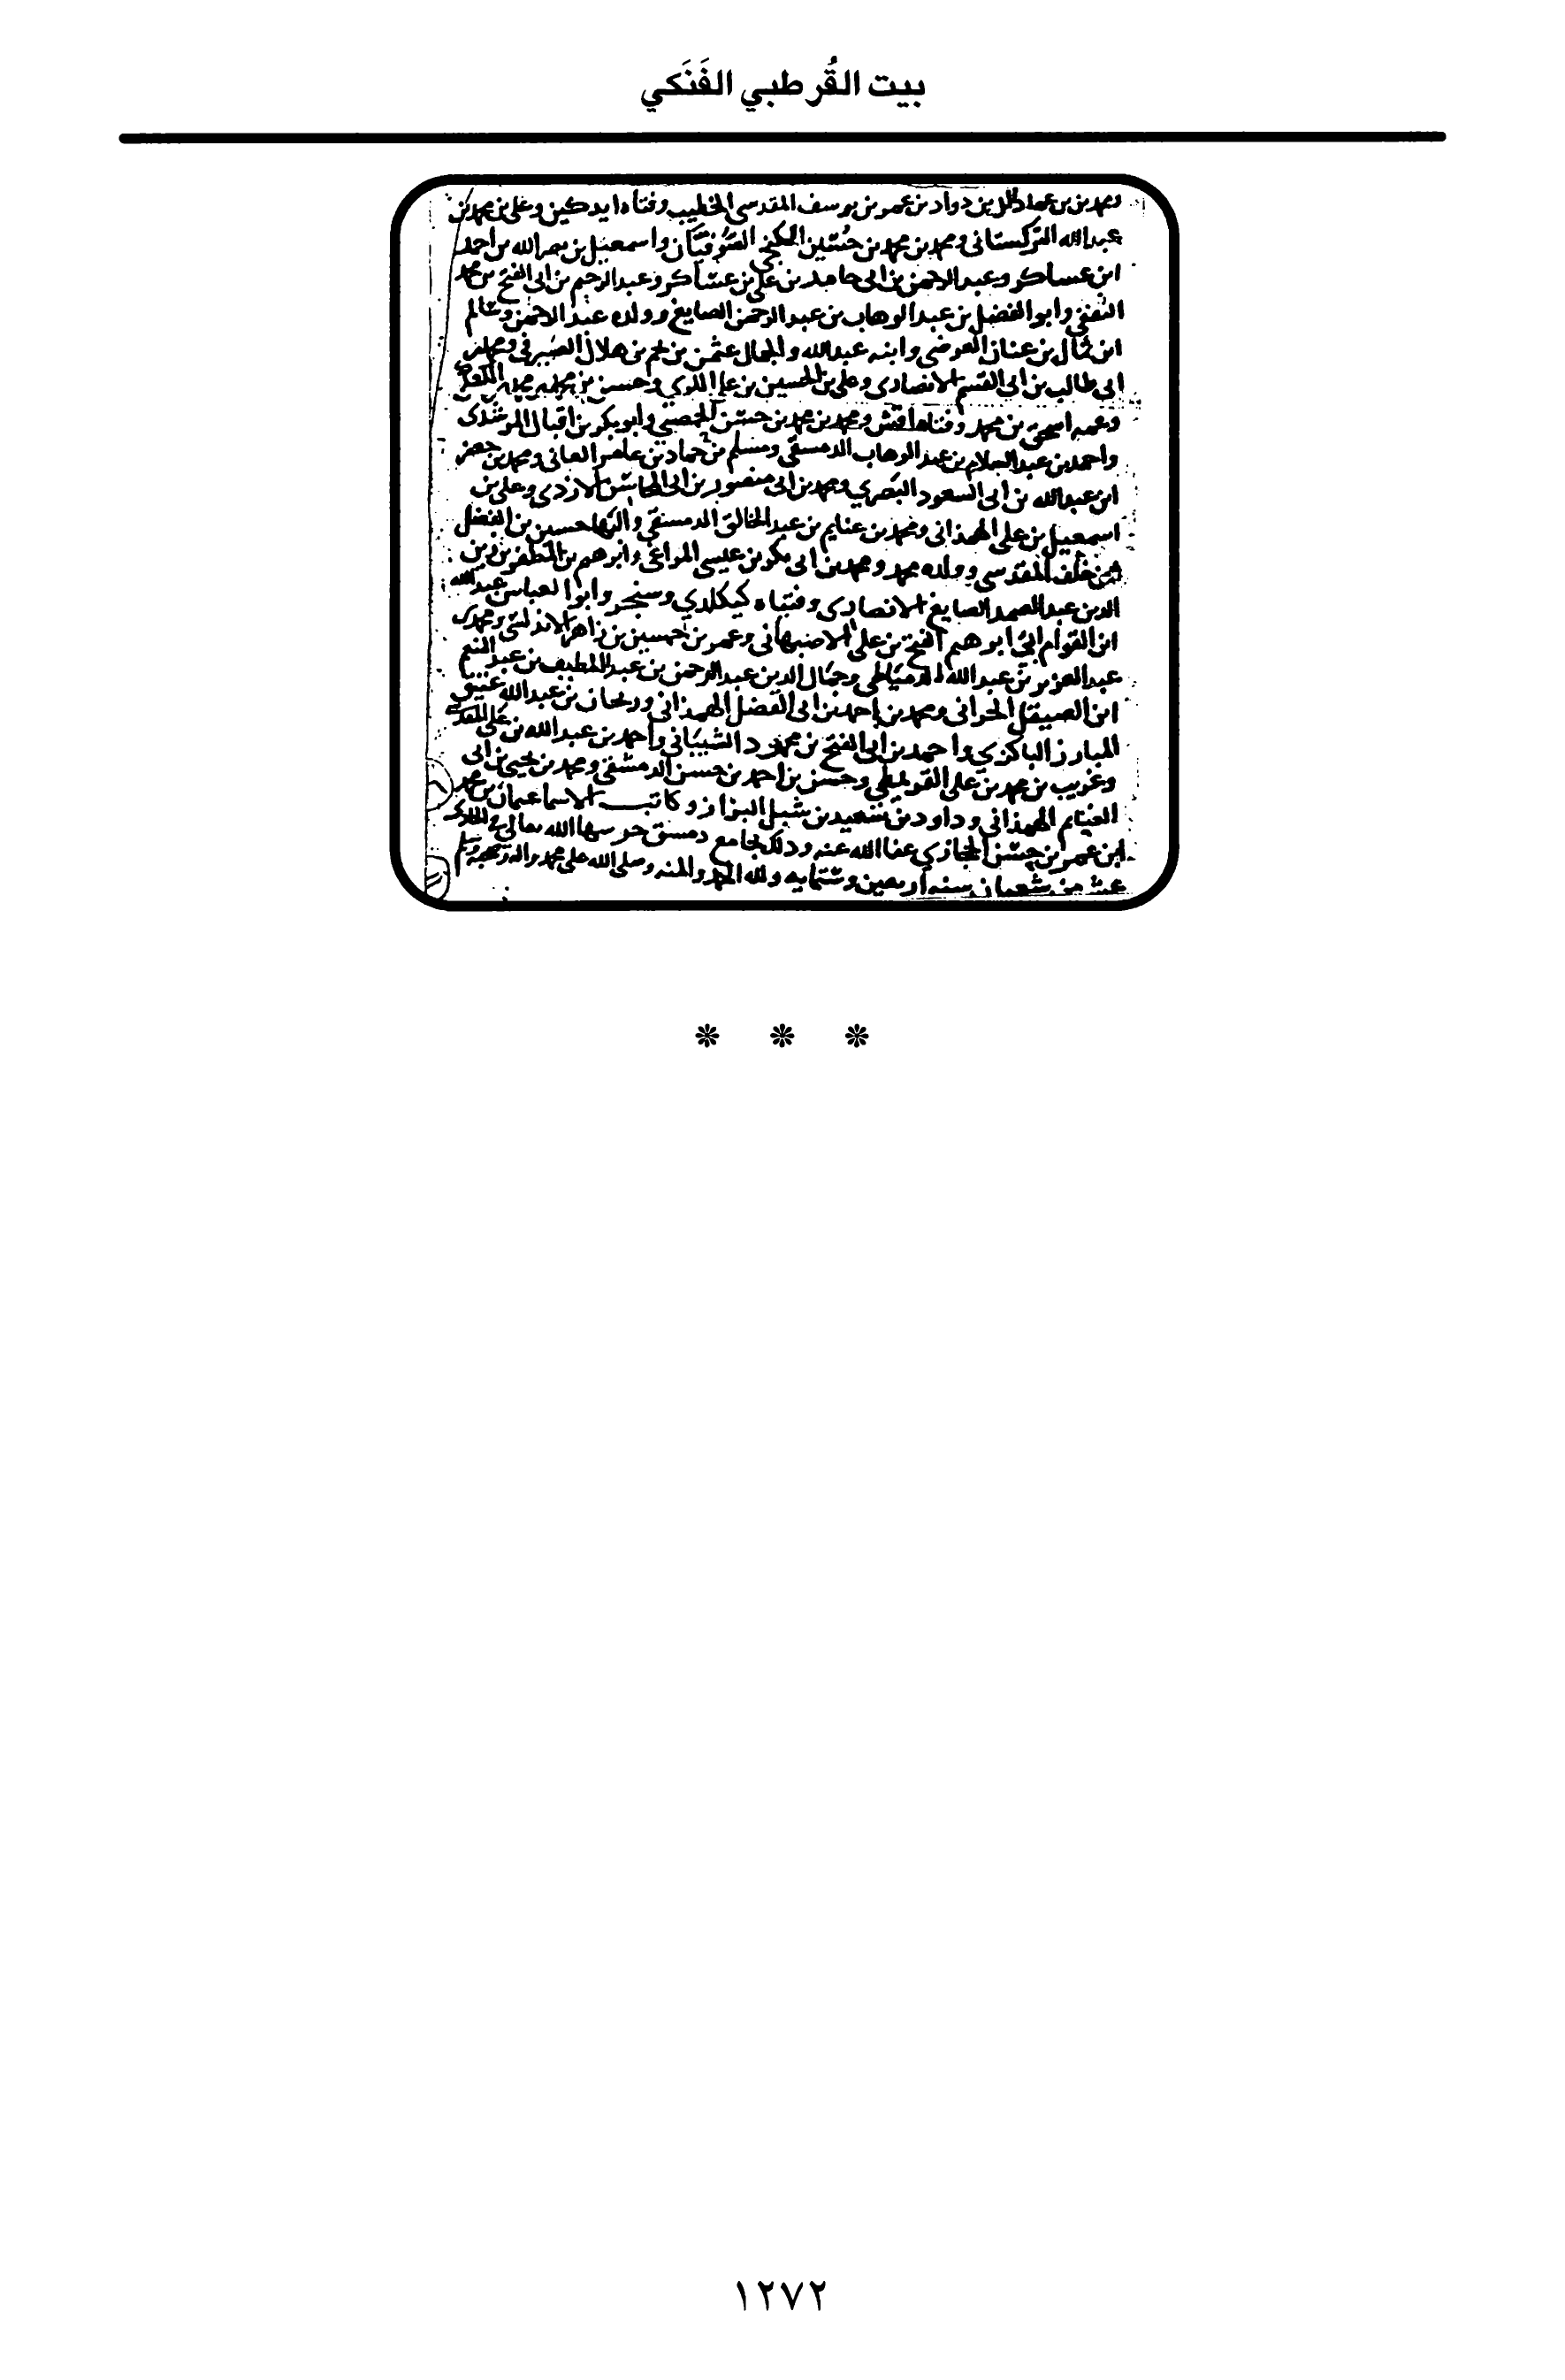 بيت القُرطبي الفَنَكي
بن دواد بن عمر بن يوسف المقدسي الخطيب وفتاه ايدكين وعلي بن محمد بن
عبدالله التركستاني ومحمد بن محمد بن الصوفيان واسمعيل بن نصر الله بن احمد
ابن عساكر وعبد الرحمن بن ابي حامد بن علي بن عساكر وعبد الرحيم بن ابي الفتح بن محمد
وابو الفضل بن عبد الوهاب بن عبد الرحمن الصايغ وولده عبد الرحمن
ابن بن عنان العرضي وابنه عبدالله والجمال عثمن بن بن هلال الصيرفي
ابي طالب بن ابي القسم الانصاري وعلي بن الحسين بن علي وحسن بن
وعمه اسحق بن محمد وفتاه اقش ومحمد بن محمد بن حسن الحمصي وابو بكر بن اقبال المرشدي
واحمد بن عبد السلام بن عبد الوهاب الدمسقي ومسلم بن حماد بن ومحمد بن جعفر
ابن عبدالله بن ابي السعود البصري ومحمد بن ابي منصور بن ابي الازدي وعلي بن
اسمعيل بن علي الهمذاني ومحمد بن غنايم بن عبد الخالق الدمسقي والبها حسين بن الفضل
بن خلف المقدسي وولده محمد ومحمد بن ابي بكر بن عيسي المراغي وابرهيم بن المظفر
الدين عبد الصمد الصايغ الانصاري وفتياه كيكلدي وسنجر وابوا العباس عبدالله
ابن القوام ابي ابرهيم الفتح بن علي الاصبهاني وعمر بن حسين بن زاهر
عبد العزيز بن عبد الله الدمياطي وجمال الدين عبد الرحمن بن عبد اللطيف بن عبد المنعم
ابن الصيقل الحراني ومحمد بن احمد بن ابي الفضل الهمذاني وريحان بن عبد الله عتيق
المبارز الباكزي واحمد بن ابي الفتح بن محمود الشيباني واحمد بن عبد الله بن علي المقدسي
وغريب بن محمد بن علي وحسن بن احمد بن حسن الدمشقي ومحمد بن يحيى بن ابي
الغنايم الهمذاني وداود بن سعيد بن شبل البزاز وكاتب الاسما عثمان بن محمد
ابن عمر بن حسن الحجازي عفا الله عنه وذلك بجامع دمسق حرسها الله تعالي في الحادي
عشر من شعبان سنه اربعين وستمايه ولله الحمد والمنه وصلى الله على محمد واله وصحبه وسلم
* * *
١٢٧٢